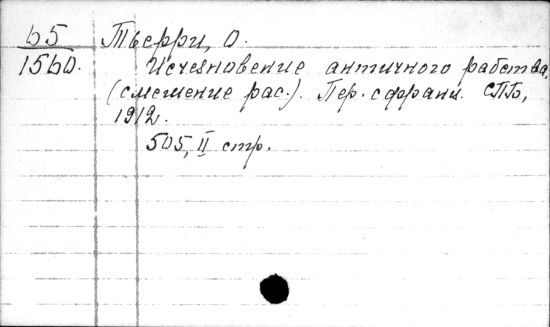 Б5
1560.
Тьерри, О.
Исчезновение античного рабства.
(смешение рас.). Пер. с франц. СПБ,
1912.
505, II стр.